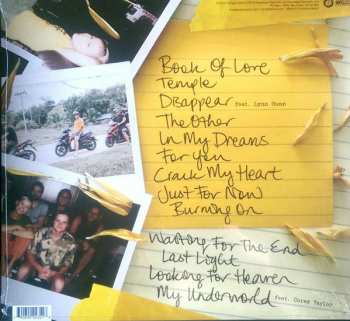 Book Of Lore
Temple
Disappear feat. Lynn Gunn
The Other
In My Dreams
For You
Crack My Heart
Just For Now
Burning On
Waiting For The End
Last Light
Looking For Heaven
My Underworld feat. Corey Taylor